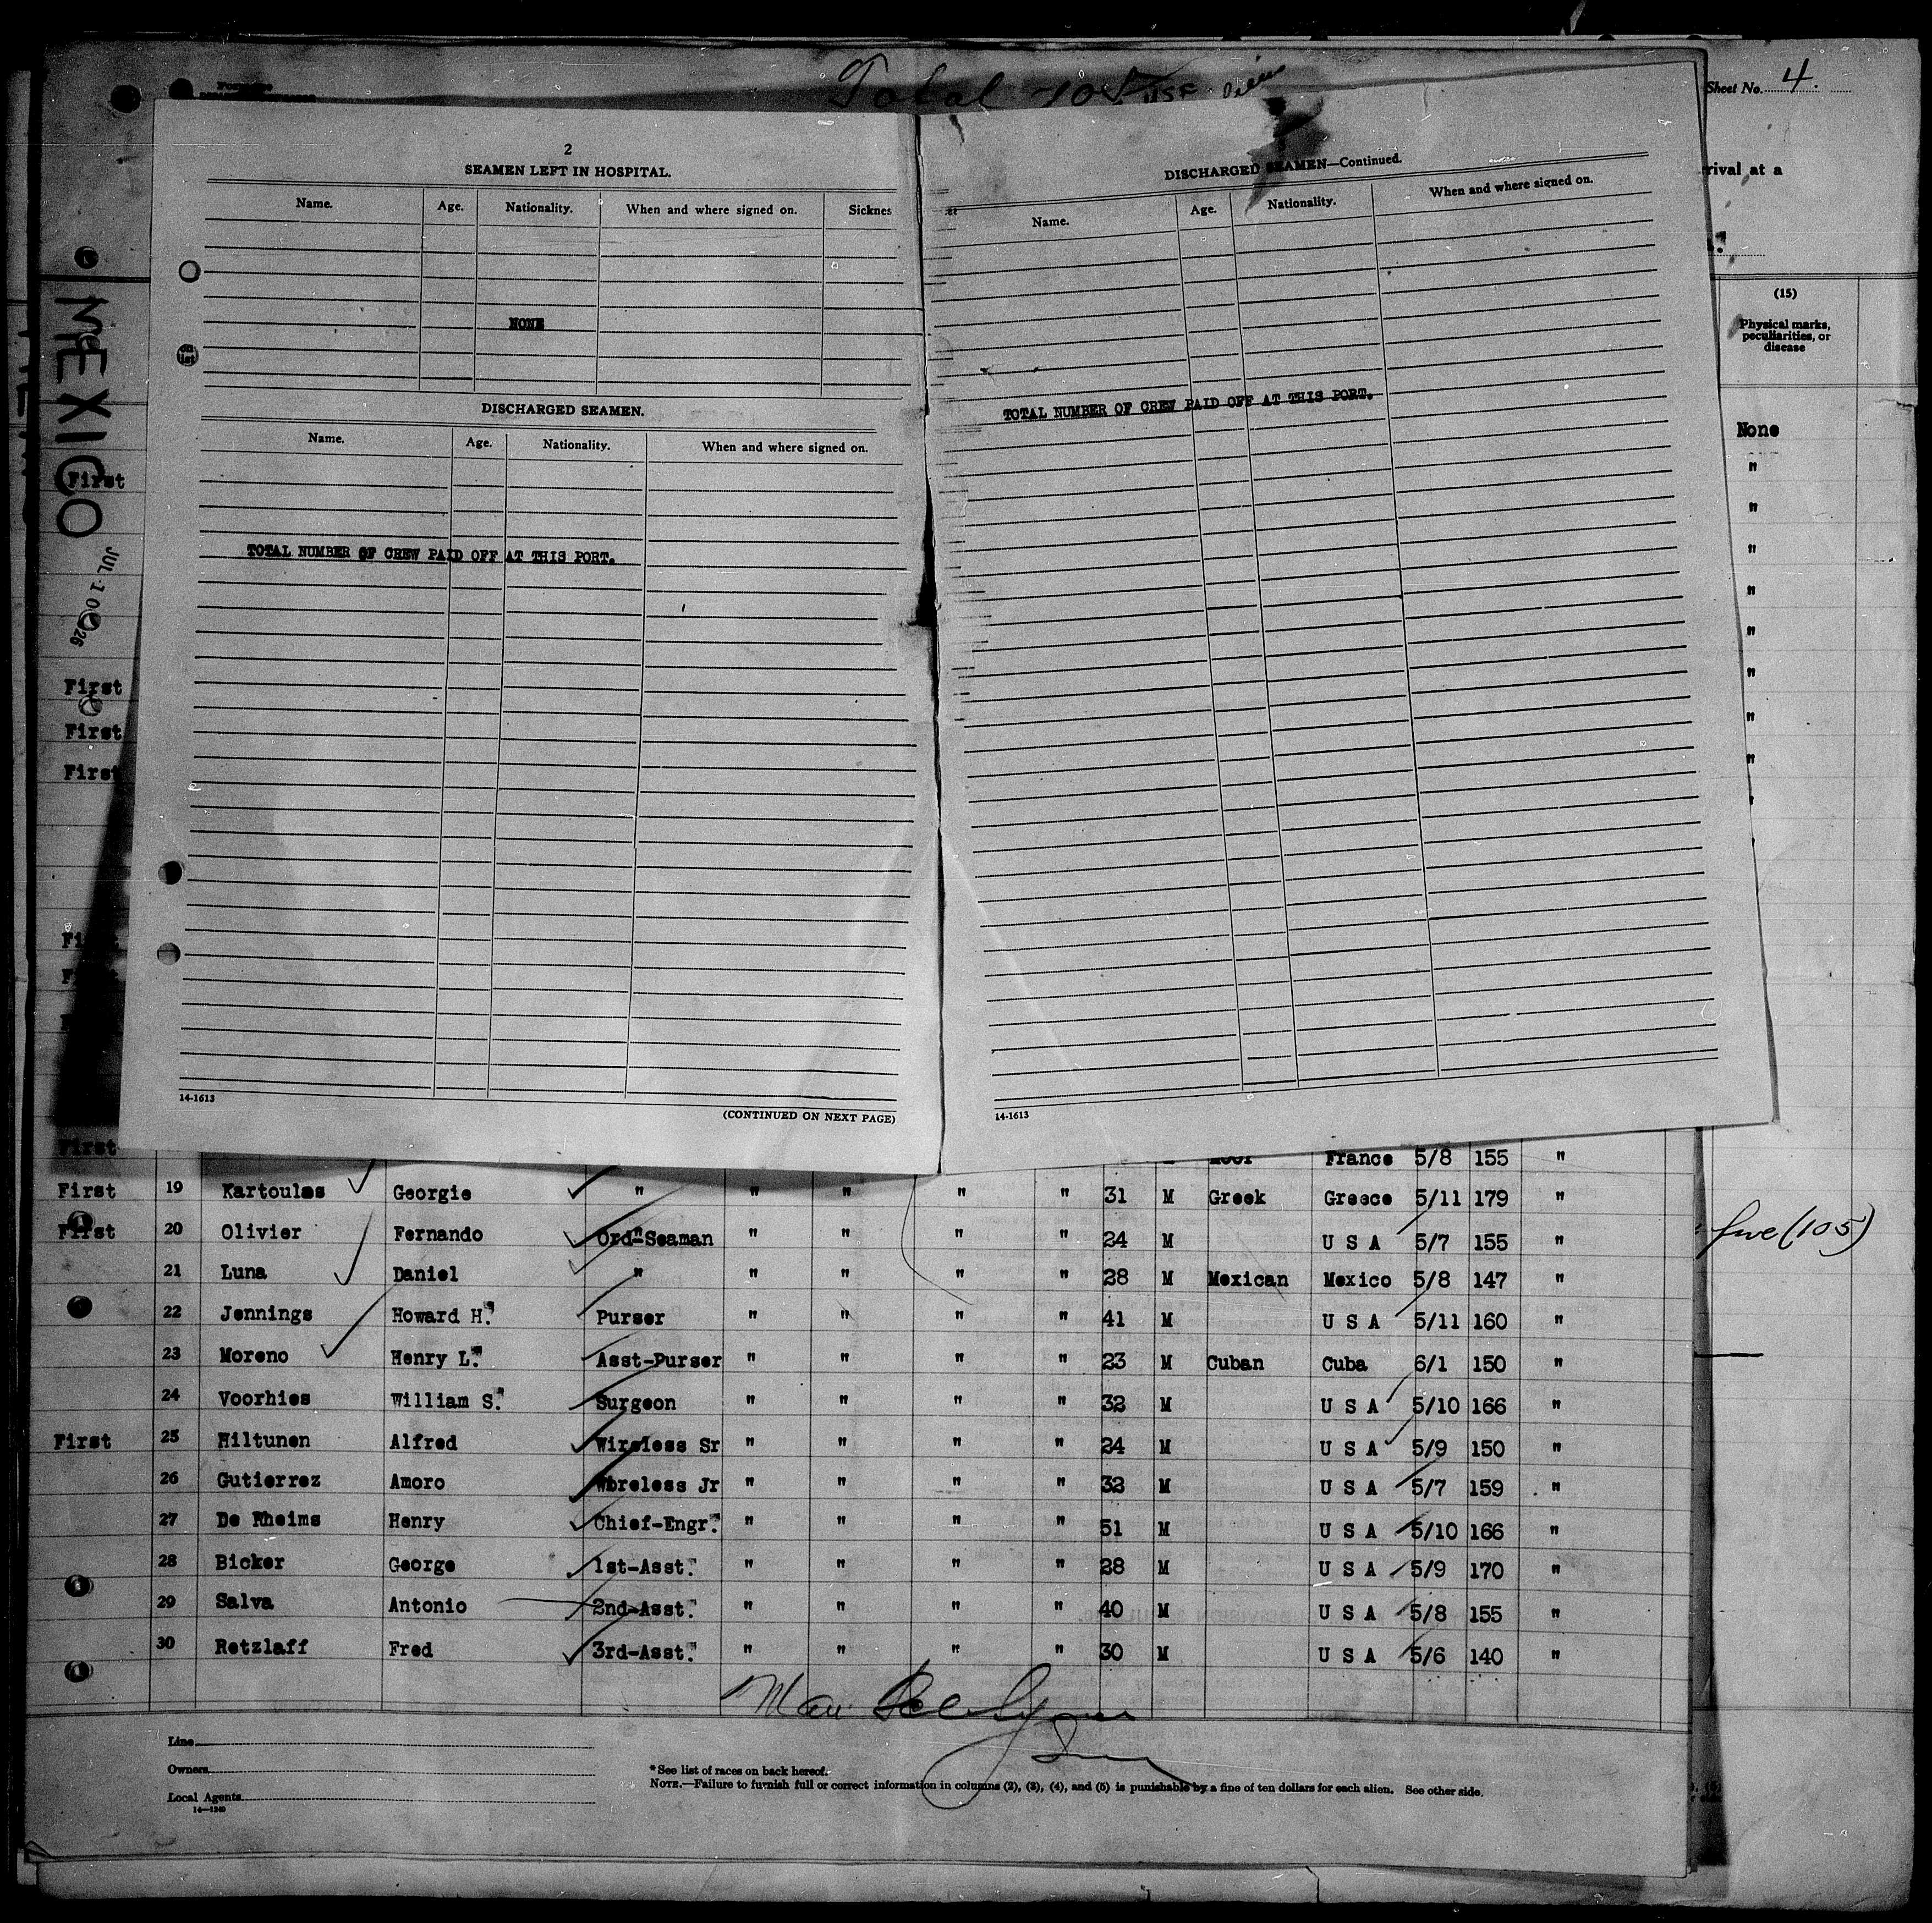 Total 105
Sheet No. 4.
rival at a
MEXICO
JUL 10 26
2
SEAMEN LEFT IN HOSPITAL.
Name. Age. Nationality. When and where signed on. Sicknes
NONE
DISCHARGED SEAMEN.
Name. Age. Nationality. When and where signed on.
TOTAL NUMBER OF CREW PAID OFF AT THIS PORT.
14-1613
(CONTINUED ON NEXT PAGE)
DISCHARGED SEAMEN—Continued.
Name. Age. Nationality. When and where signed on.
TOTAL NUMBER OF CREW PAID OFF AT THIS PORT.
14-1613
(15)
Physical marks,
peculiarities, or
disease
None
"
"
"
"
"
"
"
"
First
First
First
First
First
France 5/8 155 "
First 19 Kartoulas Georgie " " " " " 31 M Greek Greece 5/11 179 "
First 20 Olivier Fernando Ordn Seaman " " " " 24 M U S A 5/7 155 "
21 Luna Daniel " " " " " 28 M Mexican Mexico 5/8 147 "
22 Jennings Howard H. Purser " " " " 41 M U S A 5/11 160 "
23 Moreno Henry L. Asst-Purser " " " " 23 M Cuban Cuba 6/1 150 "
24 Voorhies William S. Surgeon " " " " 32 M U S A 5/10 166 "
First 25 Hiltunen Alfred Wireless Sr " " " " 24 M U S A 5/9 150 "
26 Gutierrez Amoro Wireless Jr " " " " 32 M U S A 5/7 159 "
27 De Rheims Henry Chief-Engr. " " " " 51 M U S A 5/10 166 "
28 Bicker George 1st-Asst. " " " " 28 M U S A 5/9 170 "
29 Salva Antonio 2nd-Asst. " " " " 40 M U S A 5/8 155 "
30 Retzlaff Fred 3rd-Asst. " " " " 30 M U S A 5/6 140 "
five (105)
Line
Owners
Local Agents
14—1240
*See list of races on back hereof.
NOTE.—Failure to furnish full or correct information in columns (2), (3), (4), and (5) is punishable by a fine of ten dollars for each alien. See other side.